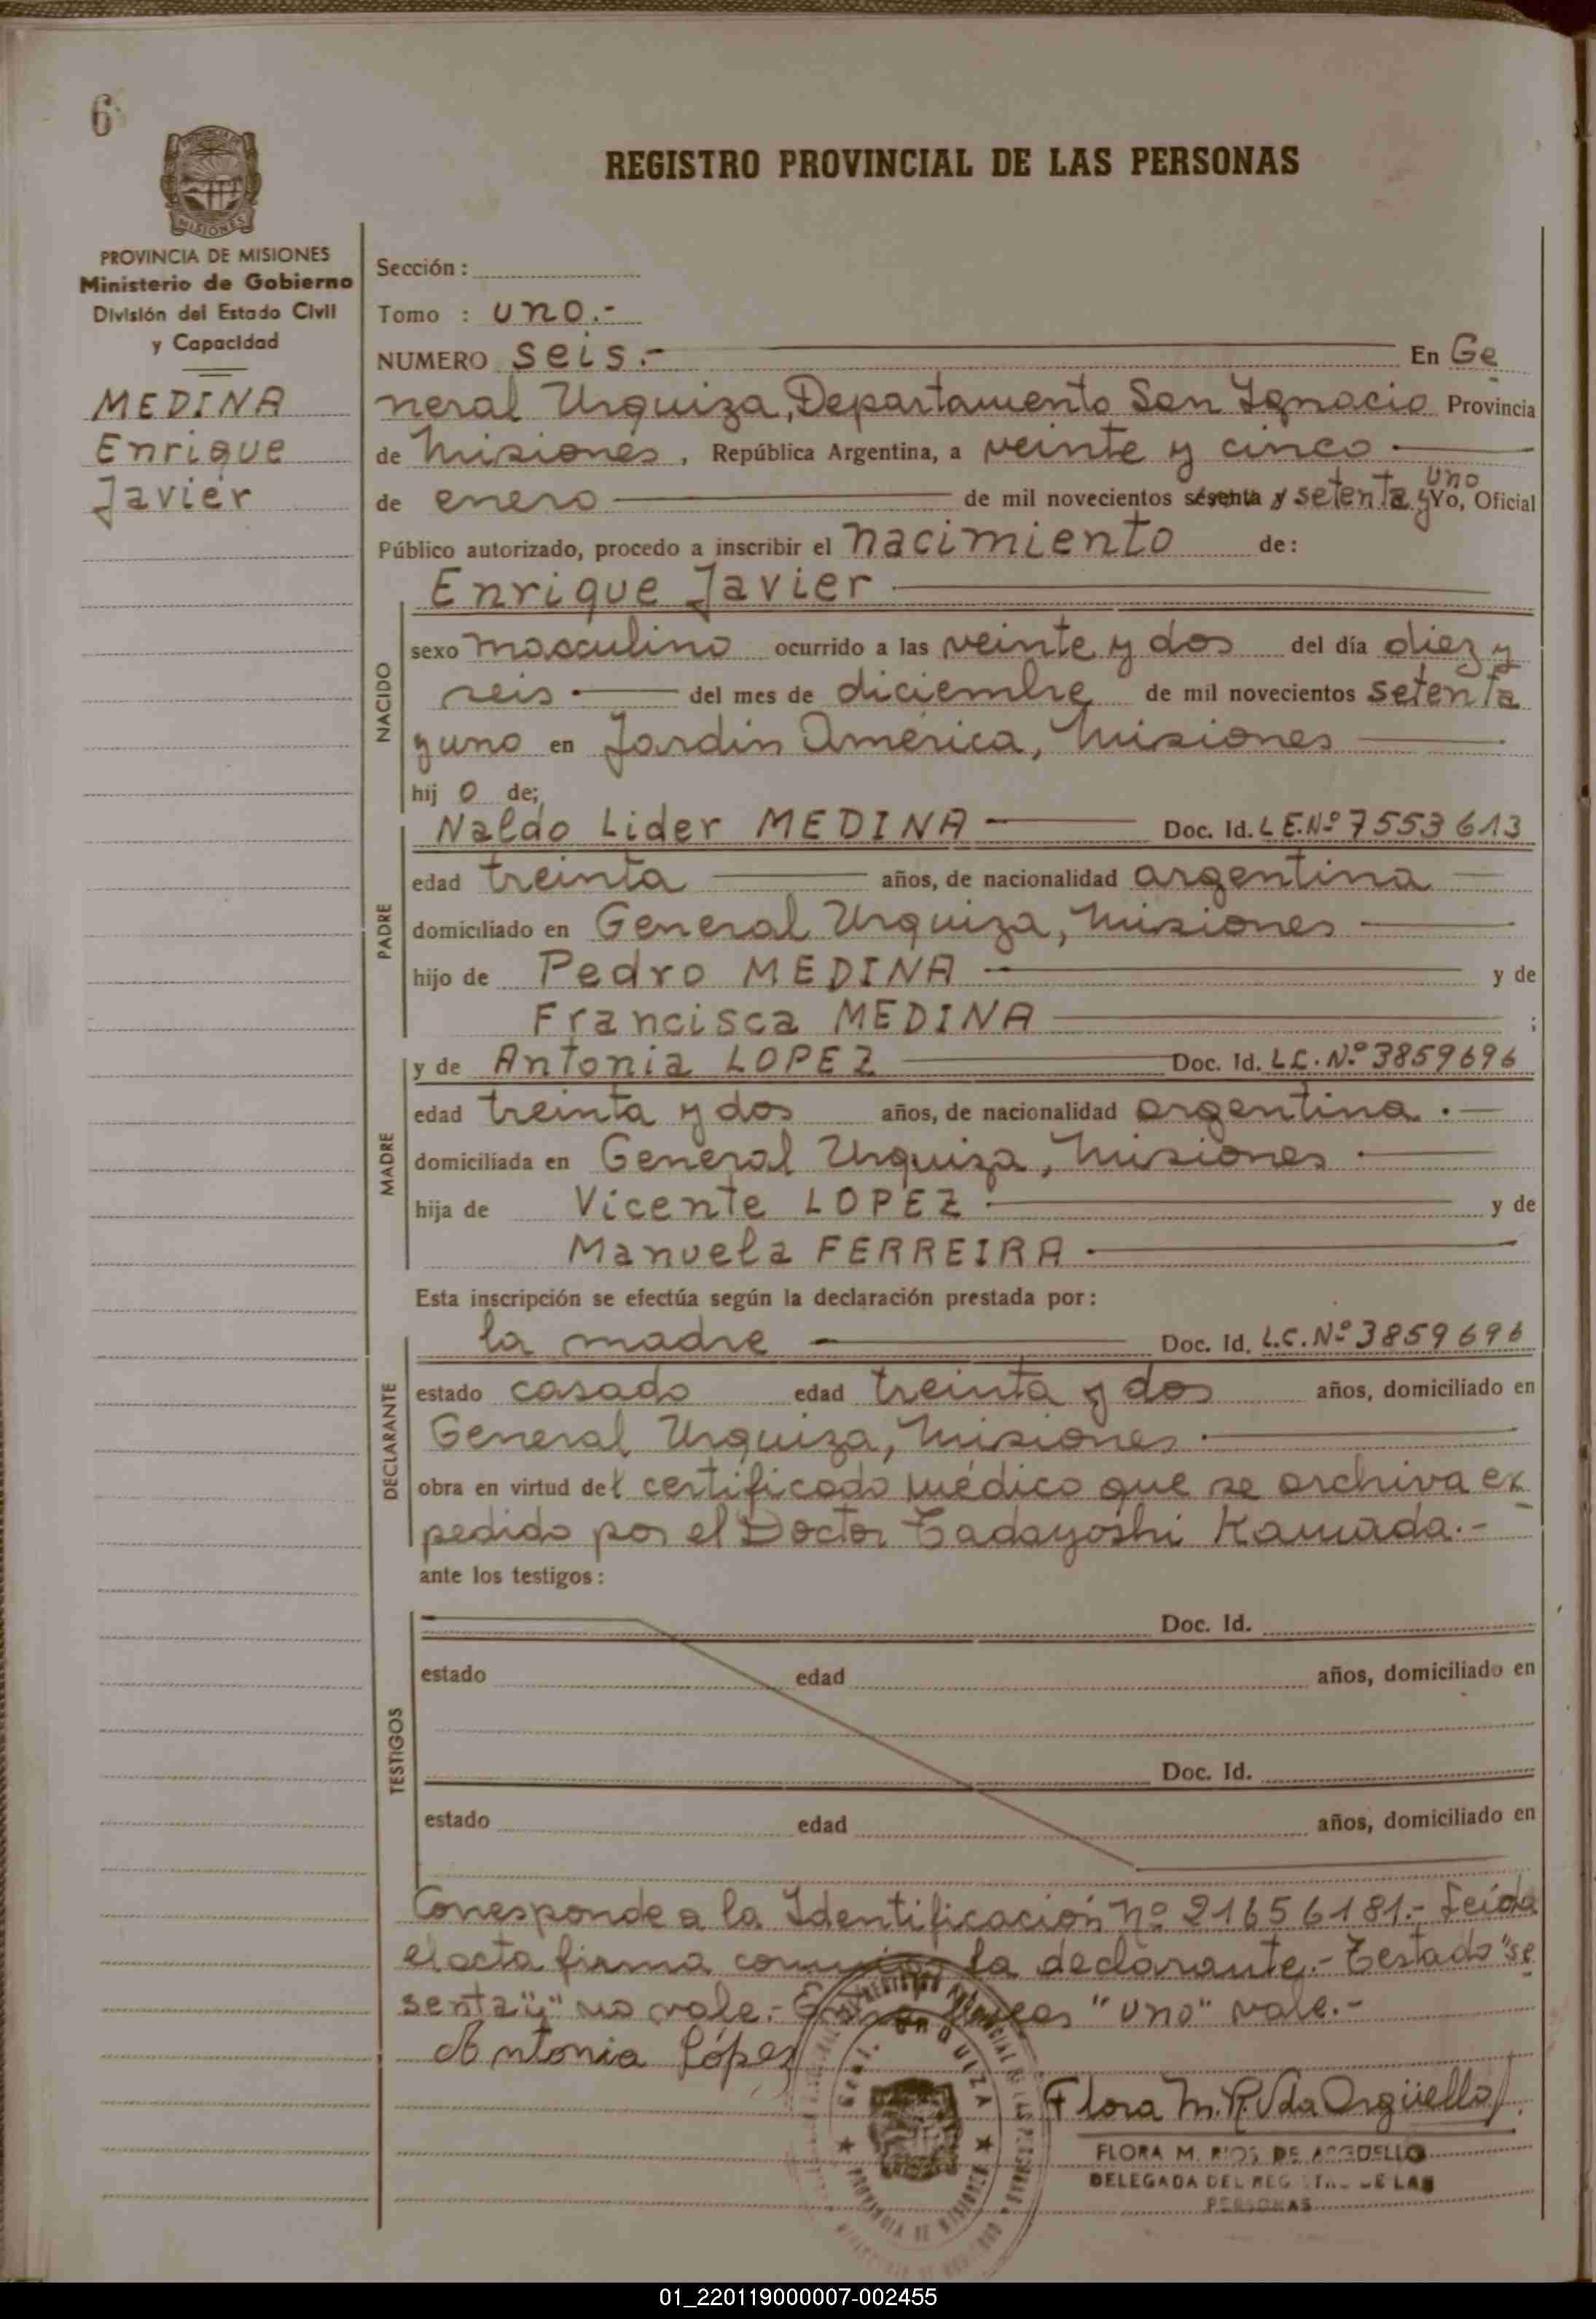 6
REGISTRO PROVINCIAL DE LAS PERSONAS
PROVINCIA DE
MISIONES
PROVINCIA DE MISIONES
Ministerio de Gobierno
División del Estado Civil
y Capacidad
MEDINA
Enrique
Javier
Sección :
Tomo : uno.-
NUMERO seis.- En Ge
neral Urquiza, Departamento San Ignacio Provincia
de Misiones, República Argentina, a veinte y cinco
de enero de mil novecientos sesenta y setenta y uno Yo, Oficial
Público autorizado, procedo a inscribir el nacimiento de:
Enrique Javier
NACIDO
sexo masculino ocurrido a las veinte y dos del día diez y
seis.- del mes de diciembre de mil novecientos setenta
y uno en Jardín América, Misiones
hij o de;
PADRE
Naldo Lider MEDINA Doc. Id. L E.Nº 7553613
edad treinta años, de nacionalidad argentina
domiciliado en General Urquiza, Misiones
hijo de Pedro MEDINA y de
Francisca MEDINA ;
MADRE
y de Antonia LOPEZ Doc. Id. L.C. Nº 3859696
edad treinta y dos años, de nacionalidad argentina.-
domiciliada en General Urquiza, Misiones.
hija de Vicente LOPEZ y de
Manuela FERREIRA.
Esta inscripción se efectúa según la declaración prestada por:
DECLARANTE
la madre Doc. Id. L.C. Nº 3859696
estado casado edad treinta y dos años, domiciliado en
General Urquiza, Misiones.
obra en virtud del certificado médico que se archiva ex
pedido por el Doctor Tadayoshi Kamada.-
ante los testigos:
TESTIGOS
Doc. Id.
estado edad años, domiciliado en
Doc. Id.
estado edad años, domiciliado en
Corresponde a la Identificación nº 21656181.- Leída
el acta firma conmigo la declarante.- Testado "se
senta" "y" no vale.- Entre líneas "uno" vale.-
Antonia López
GRAL. URQUIZA
PROVINCIA DE MISIONES
Flora M. R. Vda Orgüello
FLORA M. RIOS DE ARGUELLO
DELEGADA DEL REG DE LAS
PERSONAS
01_220119000007-002455